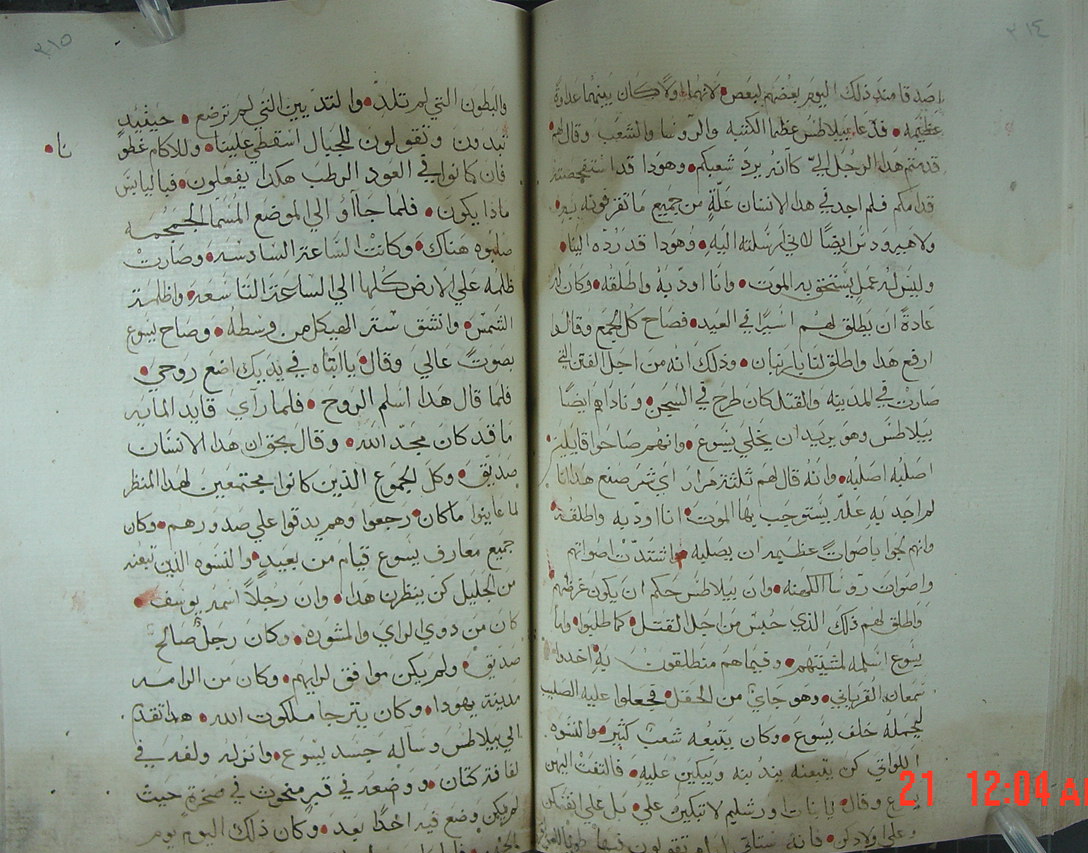 ٣١٤
اصدقا منذ ذلك اليوم بعضهم لبعض لانهما اولا كان بينهما عداوة
عظيمه فدعا بيلاطس عظما الكهنه والروسا والشعب وقال لهم
قدمتم هذا الرجل اليّ كانه يرد شعبكم وهوذا قد استفحصته
قدامكم فلم اجد في هذا الانسان علّة من جميع ما تقرفونه به
ولا هيرودس ايضًا لاني ارسلته اليه وهوذا قد ردّه الينا
وليس له عمل يستحق به الموت وانا اودّبه واطلقه وكان له
عادةً ان يطلق لهم اسيرًا في العيد فصاح كل الجمع وقالوا
ارفع هذا واطلق لنا بارنبان وذلك انه من اجل الفتن التي
صارت في المدينه والقتل كان طرح في السجن وناداهم ايضًا
بيلاطس وهو يريد ان يخلي يسوع وانهم صاحوا قايلين
اصلبه اصلبه وانه قال لهم ثلثة مرار اي شر صنع هذا انا
لم اجد به علّه يستوجب بها الموت انا اودبه واطلقه
وانهم لجوا باصواتٍ عظيمه ان يصلبه واشتدّت اصواتهم
واصوات روسا الكهنه وان بيلاطس حكم ان يكون غرضهم
واطلق لهم ذلك الذي حبس من اجل القتل كما طلبوا واما
يسوع اسلمه لمشيتهم وفيما هم منطلقون به اخذوا
سمعان القرياني وهو جايّ من الحقل فجعلوا عليه الصليب
ليحمله خلف يسوع وكان يتبعه شعب كثير والنسوه
اللواتي كن يتبعنه يندبنه ويبكين عليه فالتفت اليهن
يسوع وقال يا بنات اورشليم لا تبكين علي بل علي انفسكن
وعلي اولادكن فانه ستاتي ايام تقولون فيها طوبا للعواقر
٣١٥
والبطون التي لم تلد والثديين التي لم ترضع حينيذٍ
تبدون وتقولون للجبال اسقطي علينا وللاكام غطو
نا
فان كانوا في العود الرطب هكذا يفعلون فباليابس
ماذا يكون فلما جاآو الي الموضع المسما الجمجمه
صلبوه هناك وكانت الساعة السادسه وصارت
ظلمه علي الارض كلها الي الساعة التاسعه واظلمة
الشمس وانشق ستر الهيكل من وسطه وصاح يسوع
بصوتٍ عالي وقال يا ابتاه في يديك اضع روحي
فلما قال هذا اسلم الروح فلما رآي قايد المايه
ما قد كان مجدّ الله وقال بحق ان هذا الانسان
صديق وكل الجموع الذين كانوا مجتمعين لهذا المنظر
لما عاينوا ما كان رجعوا وهم يدقوا علي صدورهم وكان
جميع معارف يسوع قيام من بعيد والنسوه الذين تبعنه
من الجليل كن ينظرن هذا وان رجلاً اسمه يوسف
كان من ذوي الراي والمشوره وكان رجل صالح
صديق ولم يكن موافق لرايهم وكان من الرامه
مدينة يهودا وكان يترجا ملكوت الله هذا تقدم
الي بيلاطس وساله جسد يسوع وانزله ولفه في
لفافة كتان ووضعه في قبرٍ منحوت في صخرةٍ حيث
لم يكن وضع فيه احدًا بعد وكان ذلك اليوم يوم
21 12:04 AM